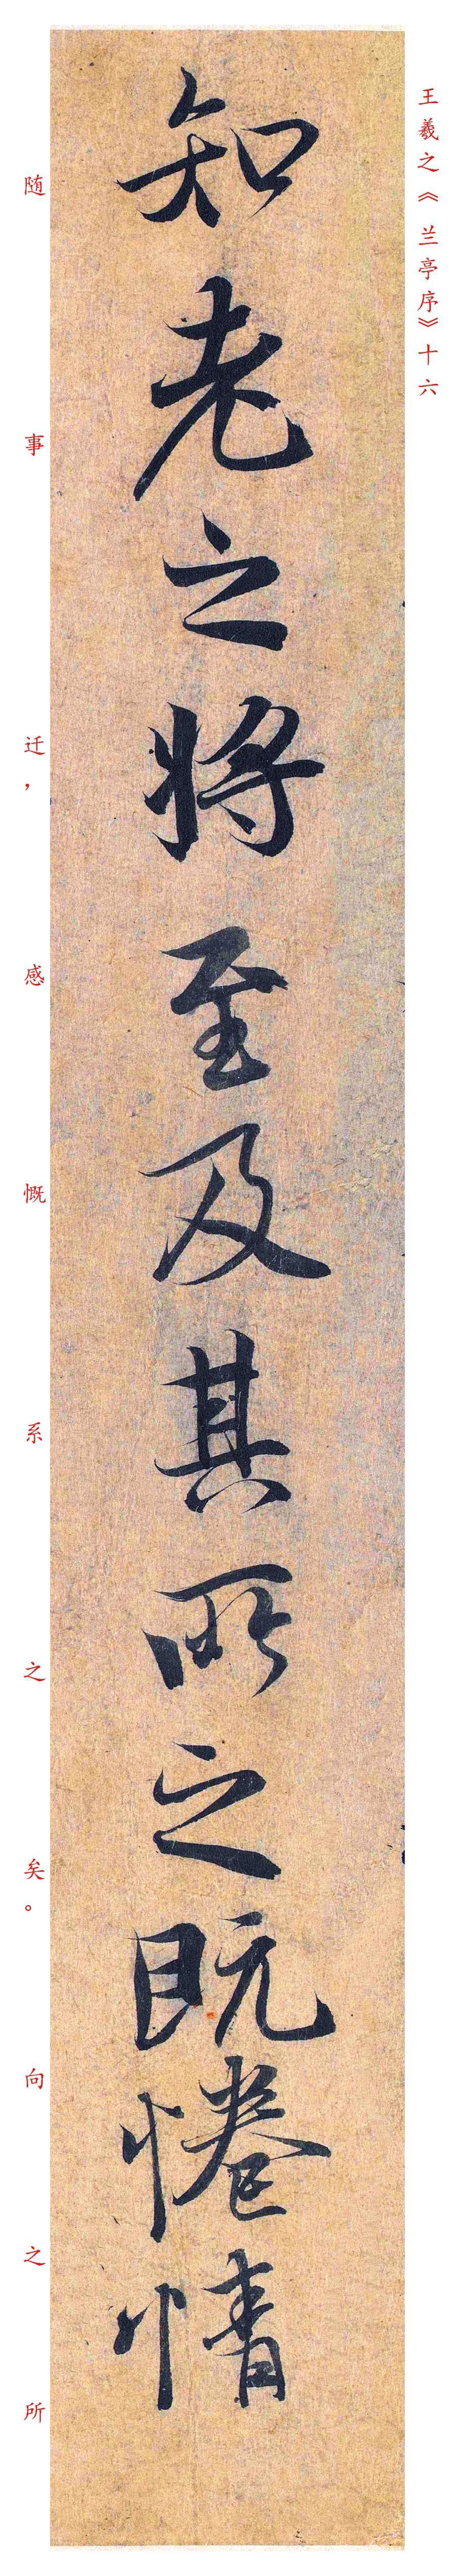 王羲之《兰亭序》十六
知老之将至及其所之既惓情
随事迁，感慨系之矣。向之所